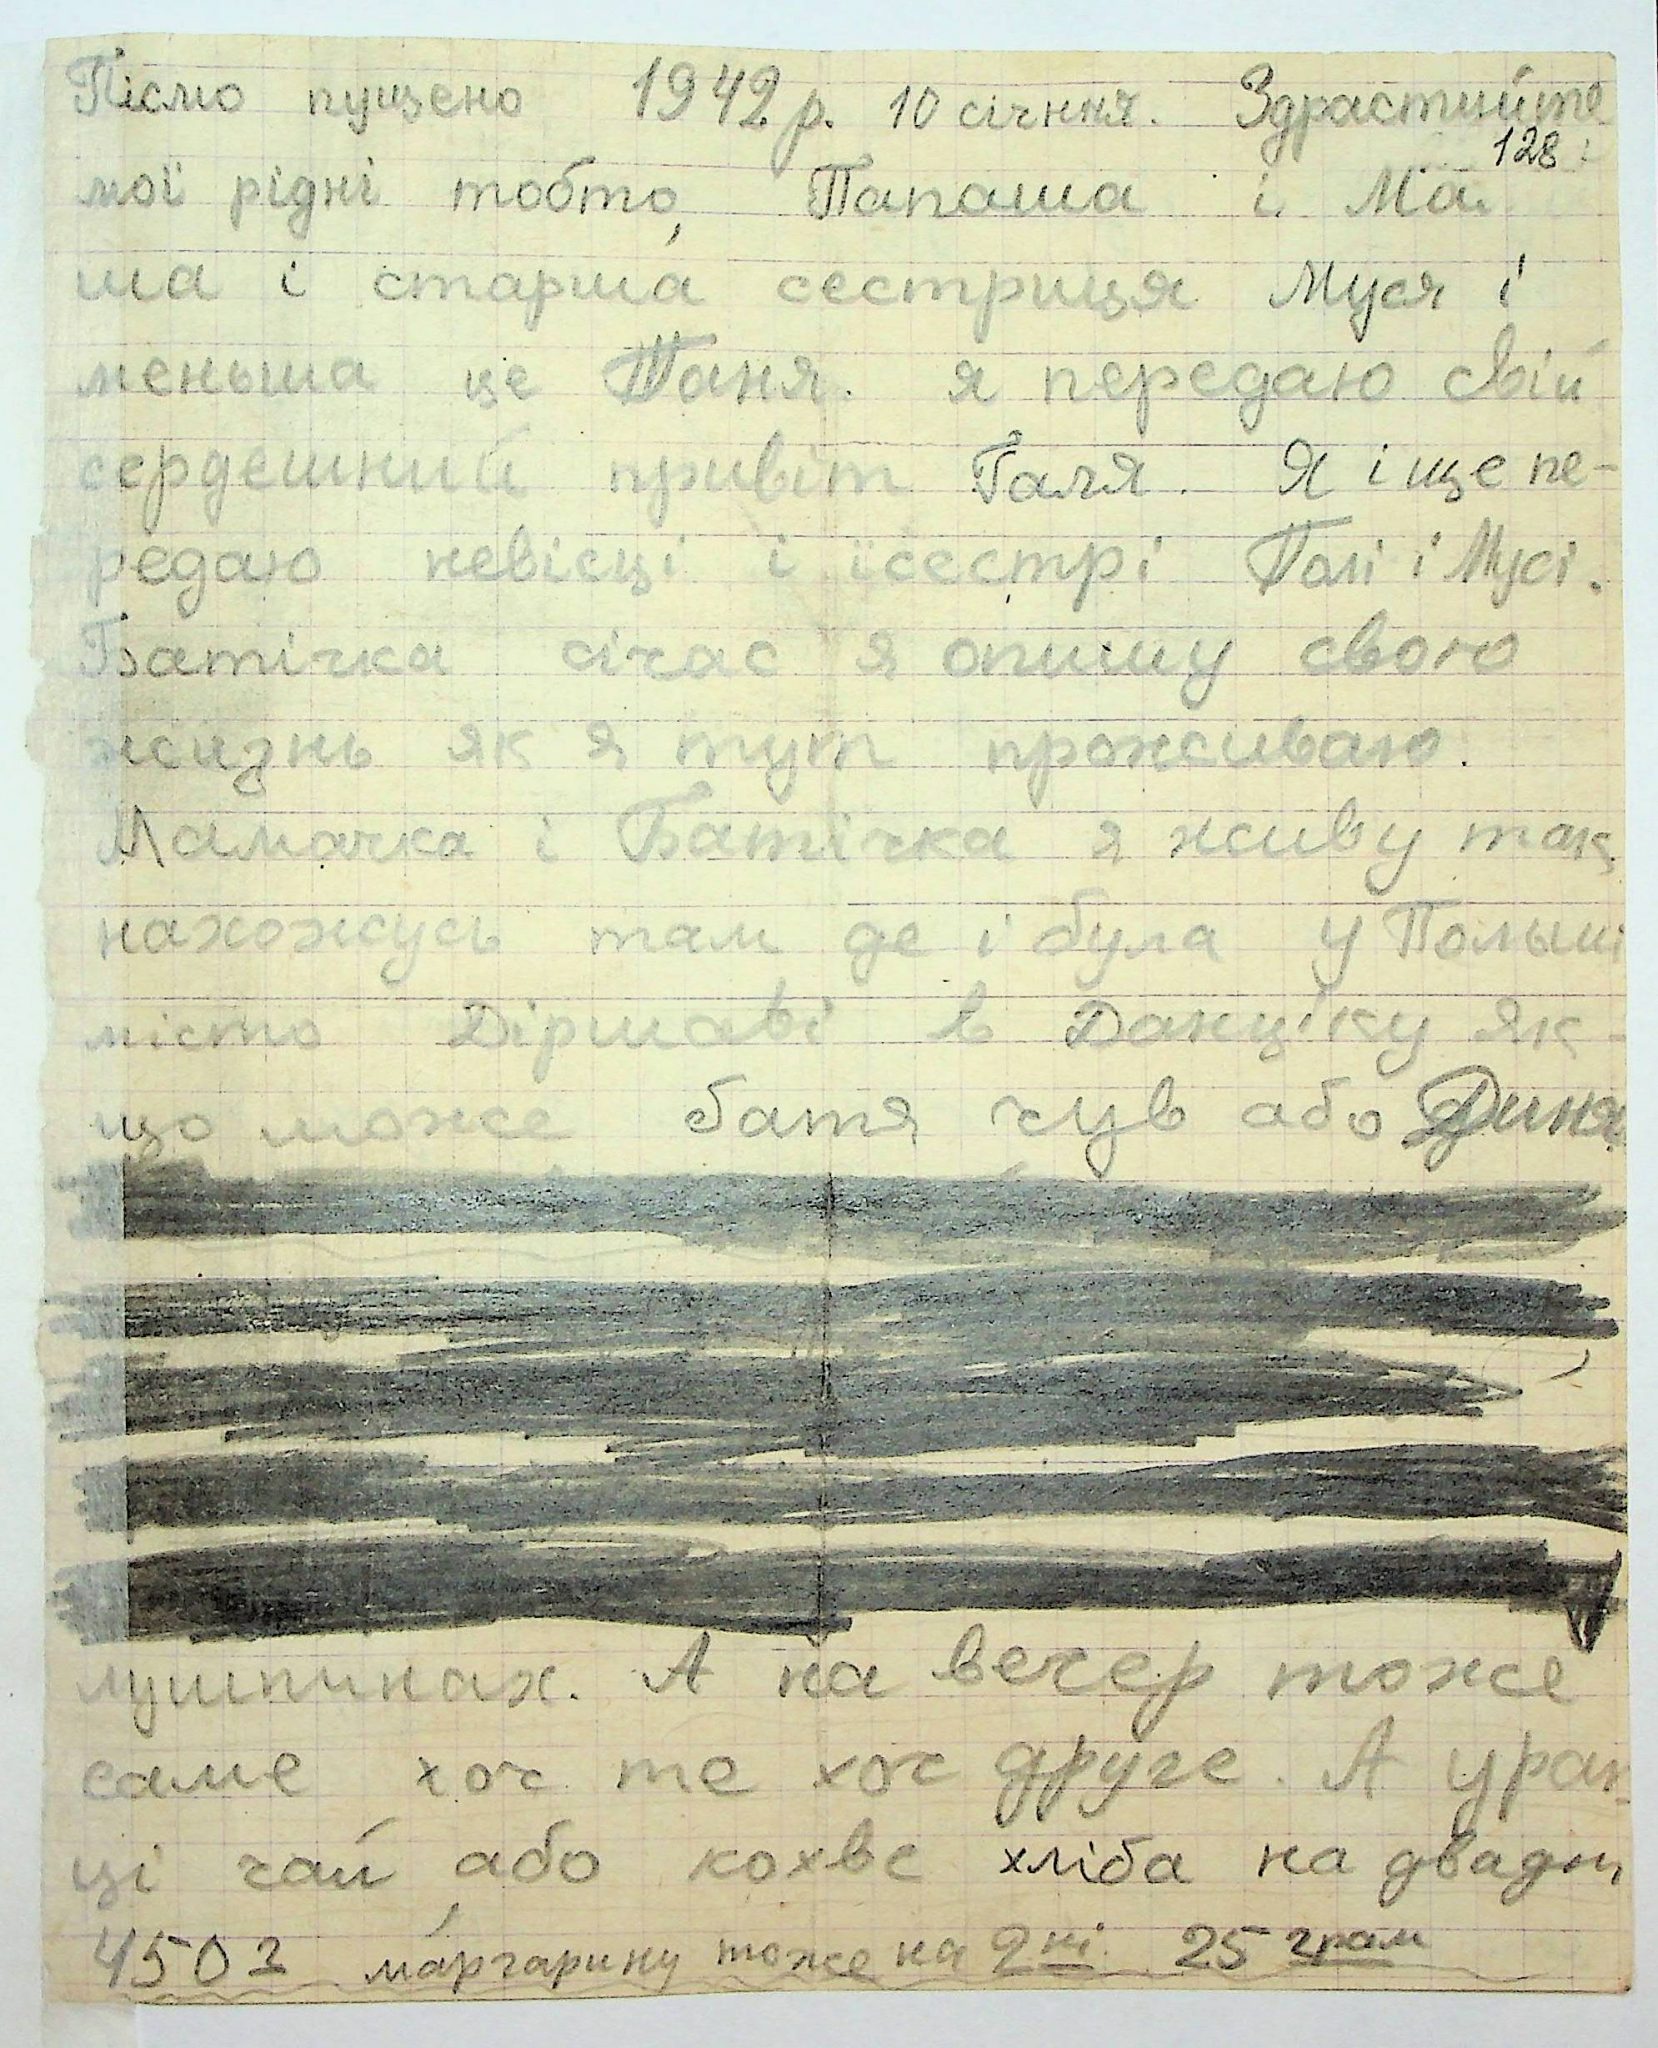 Пісмо пущено 1942 р. 10 січння. Здраствуйте
128
мої рідні тобто, Папаша і Ма
ша і старша сестриця Муся і
меньша це Таня. я передаю свій
сердешний привіт Галя. Я і ще пе-
редаю невісці і їсестрі Галі і Мусі.
Батічка січас я опишу свою
жизнь як я тут проживаю.
Мамачка і Батічка я живу так
нахожусь там де і була у Польші
місто Діршаві в Данціку як-
що може батя чув або Диня
лушпинах. А на вечер тоже
саме хоч те хоч друге. А уран-
ці чай або кохве хліба на двадн,
450 г маргарину тоже на 2 ні 25 грам